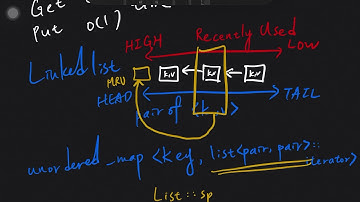 Get
Put O(1)
Recently Used
HIGH
LOW
Linked list
MRU
K,V
K,V
K,V
HEAD
TAIL
pair of <k, v>
unordered_map <key, list<pair, pair>::iterator>
List::sp